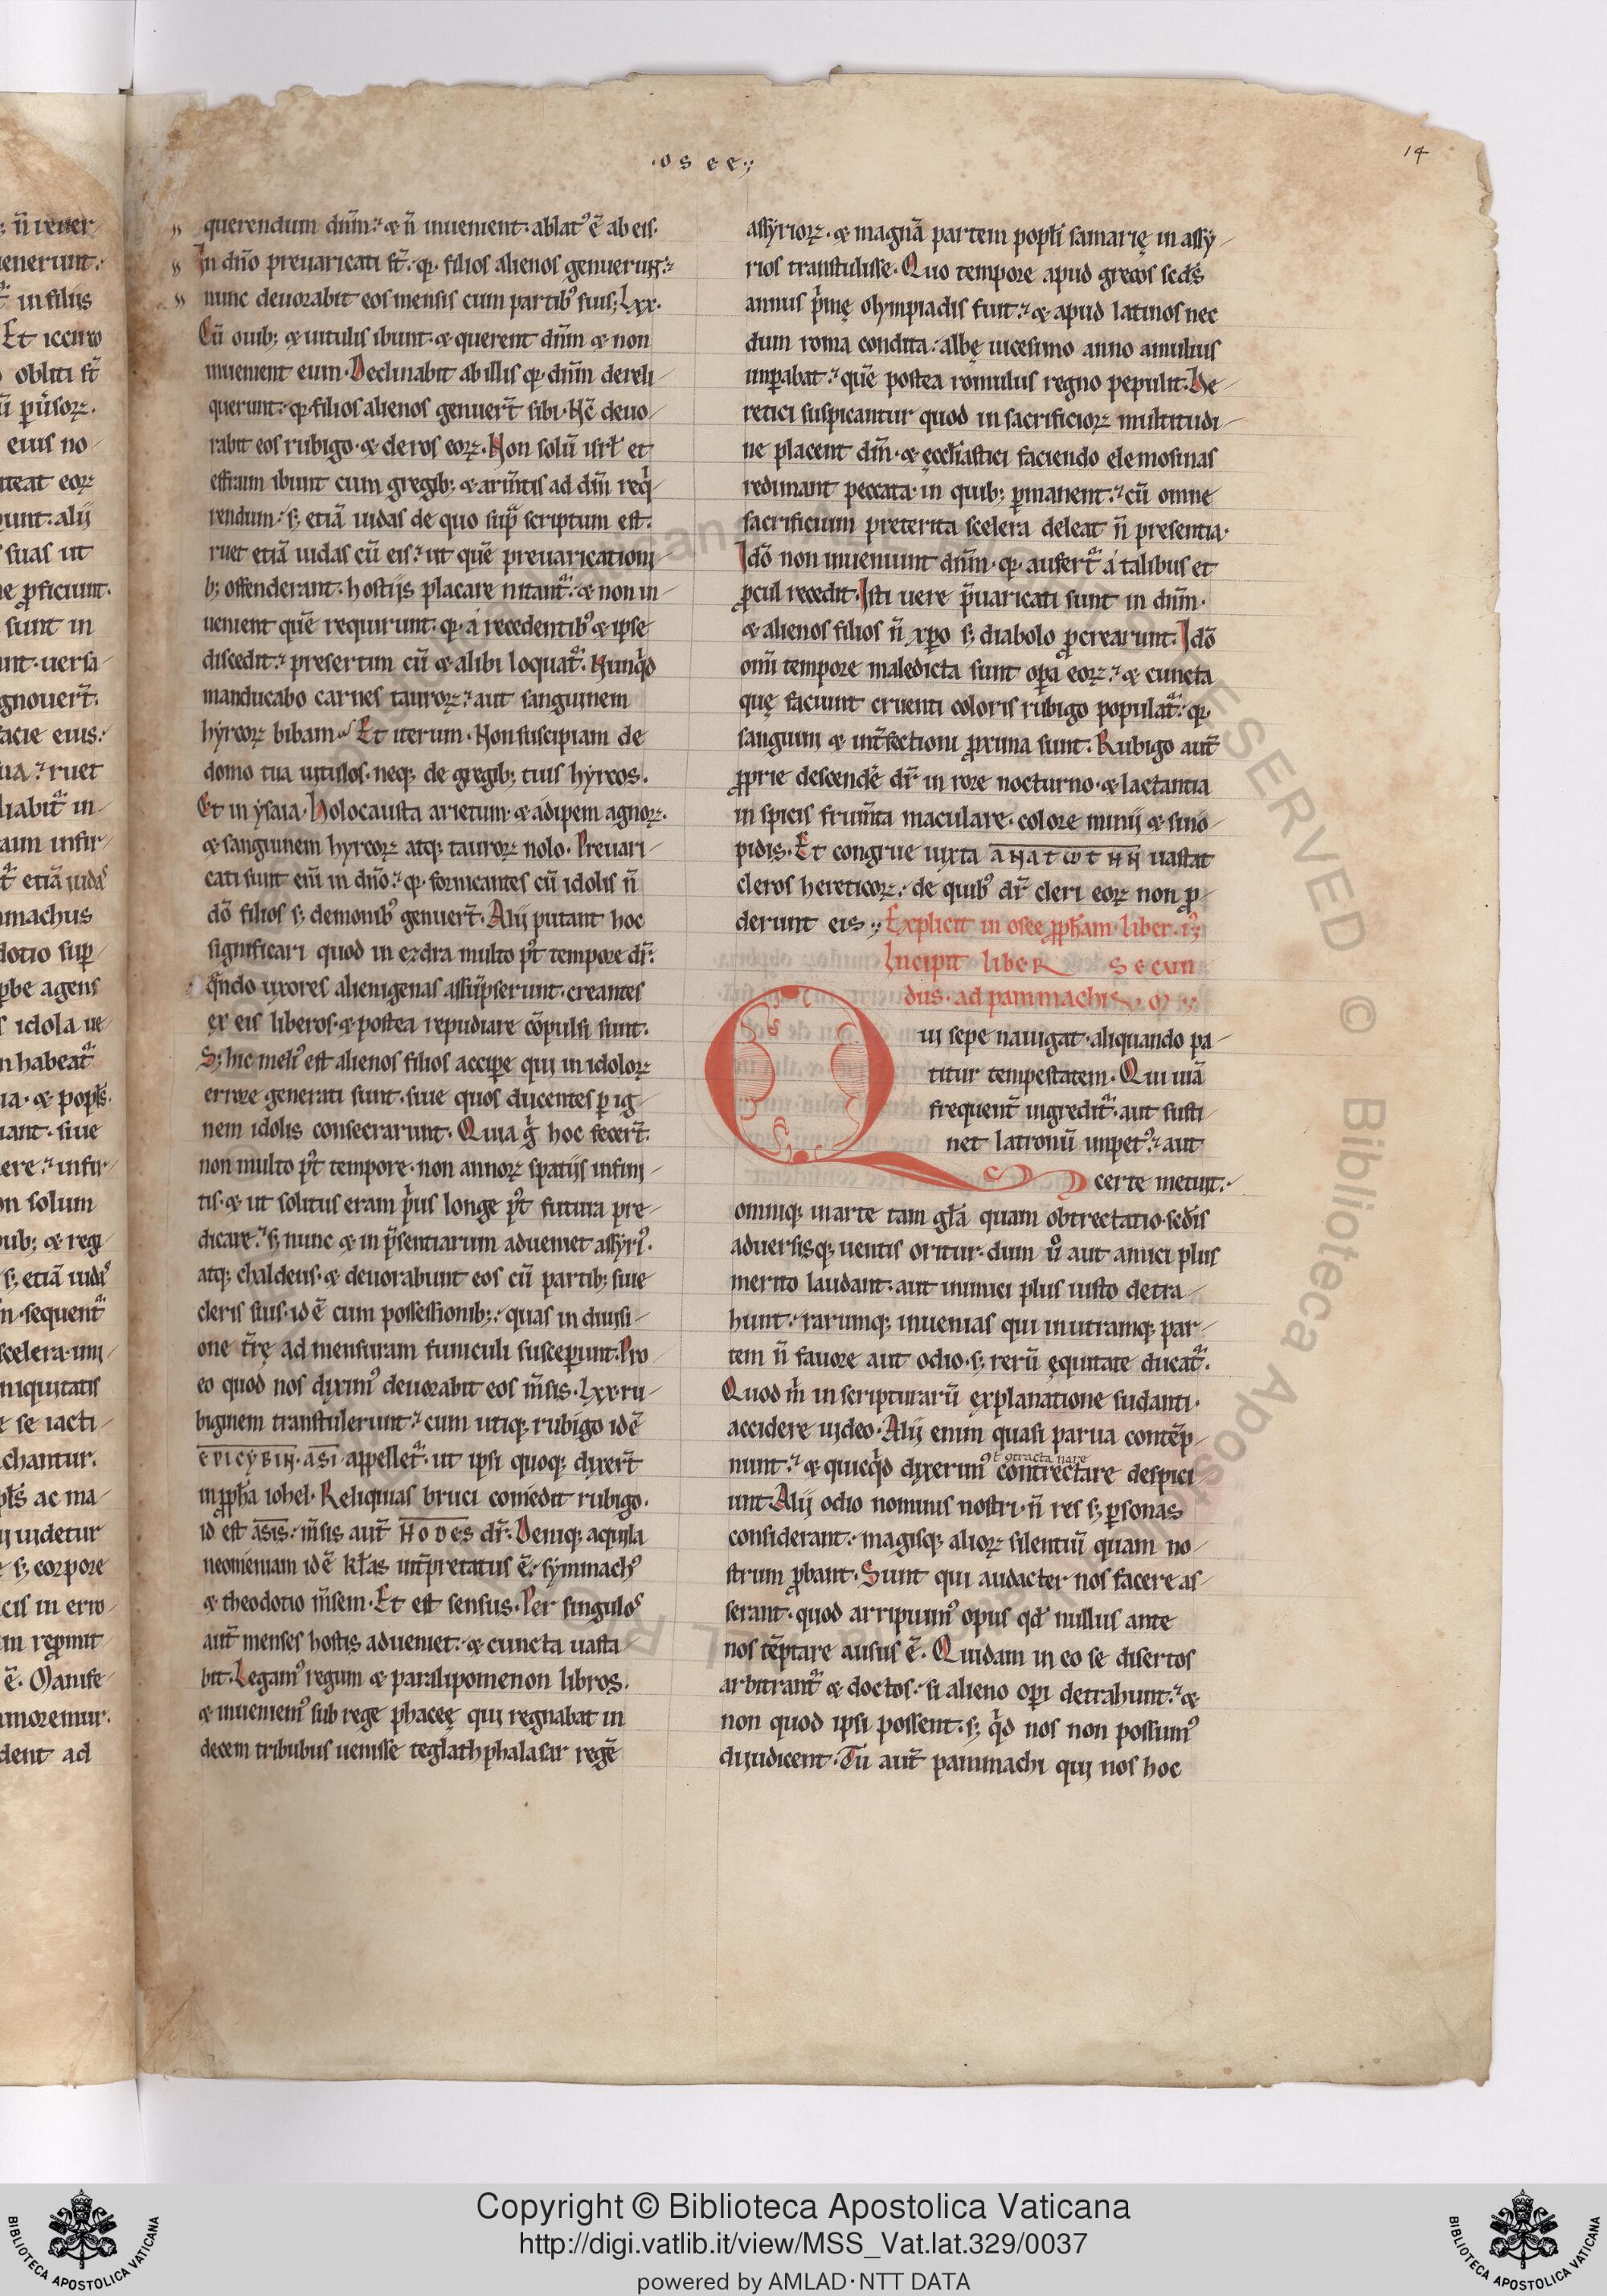 ·osee·;
14
querendum dñm.᷒ & ñ inuenient. ablat᷒ ẽ ab eis.
In dño preuaricati sť. qꝫ filios alienos genuerunt.
nunc deuorabit eos mensis cum partib᷒ suis; Lxx.
Cũ ouib; & uitulis ibunt. & querent dñm & non
inuenient eum. Declinabit ab illis qꝫ dñm dereli-
querunt. qꝫ filios alienos genuerť sibi. Nc̃ deuo-
rabit eos rubigo. & cleros eoꝝ. Non solũ isrł et
effraim ibunt cum gregib; & arm̃tis ad dñm req̇-
rendum. s; etiã iudas de quo sup̃ scriptum est.
ruet etiã iudas cũ eis. ut quẽ preuaricationi-
b; offenderant. hostijs placare nitantᷣ. & non in-
uenient quẽ requirunt. qꝫ a recedentib᷒ & ipse
discedit. presertim cũ & alibi loquatᷣ. Nunq̇d
manducabo carnes tauroꝝ. aut sanguinem
hyrcoꝝ bibam. Et iterum. Non suscipiam de
domo tua uitulos. neqꝫ de gregib; tuis hyrcos.
Et in ysaia. Holocausta arietum. & adipem agnoꝝ.
& sanguinem hyrcoꝝ atqꝫ tauroꝝ nolo. Preuari-
cati sunt em̃ in dño. qꝫ fornicantes cũ idolis ñ
dõ filios s; demonib᷒ genuerť. Alij putant hoc
significari quod in ezdra multo p᷒t tempore dr̃.
q̃ndo uxores alienigenas assũpserunt. creantes
ex eis liberos. & postea repudiare cõpulsi sunt.
S; hic meli᷒ est alienos filios accipe qui in idoloꝝ
errore generati sunt. siue quos ducentes ꝑ ig-
nem idolis consecrarunt. Quia g̊ hoc fecerť.
non multo p᷒t tempore. non annoꝝ spatijs infini-
tis. & ut solitus eram p̊us longe p᷒t futura pre-
dicare. s; nunc & in p̃sentiarum adueniet assyri᷒.
atqꝫ chaldeus. & deuorabunt eos cũ partib; siue
cleris suis. id ẽ cum possessionib;. quas in diuisi-
one ťrę ad mensuram funiculi susceperunt. Pro
eo quod nos dixim᷒ deuorabit eos m̃sis. Lxx. ru-
biginem transtulerunt. cum utiqꝫ rubigo id ẽ
ΕΡΙCΥΒΙΝ. ASI appelletᷣ. ut ipsi quoqꝫ dixerť
in ꝓph̃a iohel. Reliquias bruci comedit rubigo.
id est ASIS. m̃sis auť HODES dr̃. Deniqꝫ aquila
neomeniam id ẽ kłas inťpretatus ẽ. symmach᷒
& theodotio m̃sem. Et est sensus. Per singulos
auť menses hostis adueniet. & cuncta uasta-
bit. Legam᷒ regum & paralipomenon libros.
& inueniem᷒ sub rege phaceę qui regnabat in
decem tribubus uenisse teglath phalasar regẽ
assyrioꝝ. & magnã partem popłi samarię in assy-
rios transtulisse. Quo tempore apud grecos scds̃
annus p̊mę olympiadis fuit. & apud latinos nec
dum roma condita. albę uicesimo anno amulius
imꝑabat. quẽ postea romulus regno pepulit. He-
retici suspicantur quod in sacrificioꝝ multitudi-
ne placent dñm. & ęccłiastici faciendo elemosinas
redimant peccata. in quib; ꝑmanent. cũ omne
sacrificium preterita scelera deleat ñ presentia.
Idõ non inueniunt dñm. qꝫ aufertᷣ a talibus et
ꝓcul recedit. Isti uere p̃uaricati sunt in dñm.
& alienos filios ñ xp̃o s; diabolo ꝓcrearunt. Idõ
omi tempore maledicta sunt oꝑa eoꝝ. & cuncta
quę faciunt cruenti coloris rubigo populatᷣ. qꝫ
sanguini & inťfectioni ꝓxima sunt. Rubigo auť
ꝓprie descendẽ dr̃ in rore nocturno. & lactantia
in spicis frum̃ta maculare. colore minij & sino-
pidis. Et congrue iuxta ΑΝΑΤWΤΗΝ uastat
cleros hereticoꝝ. de quib᷒ dr̃ cleri eoꝝ non ꝓ-
derunt eis; Explicit in osee ꝓph̃am. liber. i᷒;
Incipit liber secun
dus. ad pammachiũ.
Qui sepe nauigat. aliquando pa-
titur tempestatem. Qui uiã
frequenť ingreditᷣ. aut susti-
net latronũ impet᷒. aut
certe metuit.
omniqꝫ in arte tam gł̃a quam obtrectatio. sedis
aduersisqꝫ uentis oritur. dum ů aut amici plus
merito laudant. aut inimici plus iusto detra-
hunt. rarumqꝫ inuenias qui in utramqꝫ par-
tem ñ fauore aut odio. s; rerũ ęquitate ducatᷣ.
Quod m̊ in scripturarũ explanatione sudanti.
accidere uideo. Alij enim quasi parua contẽp-
nunt. & quicq̇d dixerim᷒ contrectare despici-
unt. Alij odio nominis nostri. ñ res s; ꝑsonas
considerant. magisqꝫ alioꝝ silentiũ quam no-
strum ꝓbant. Sunt qui audacter nos facere as-
serant. quod arripuim᷒ opus qd̃ nullus ante
nos tẽptare ausus ẽ. Quidam in eo se disertos
arbitrantᷣ & doctos. si alieno oꝑi detrahunt. &
non quod ipsi possent. s; q̇d nos non possum᷒
diiudicent. Tu auť pammachi qui nos hoc
Copyright © Biblioteca Apostolica Vaticana
http://digi.vatlib.it/view/MSS_Vat.lat.329/0037
powered by AMLAD·NTT DATA
BIBLIOTECA APOSTOLICA VATICANA
BIBLIOTECA APOSTOLICA VATICANA